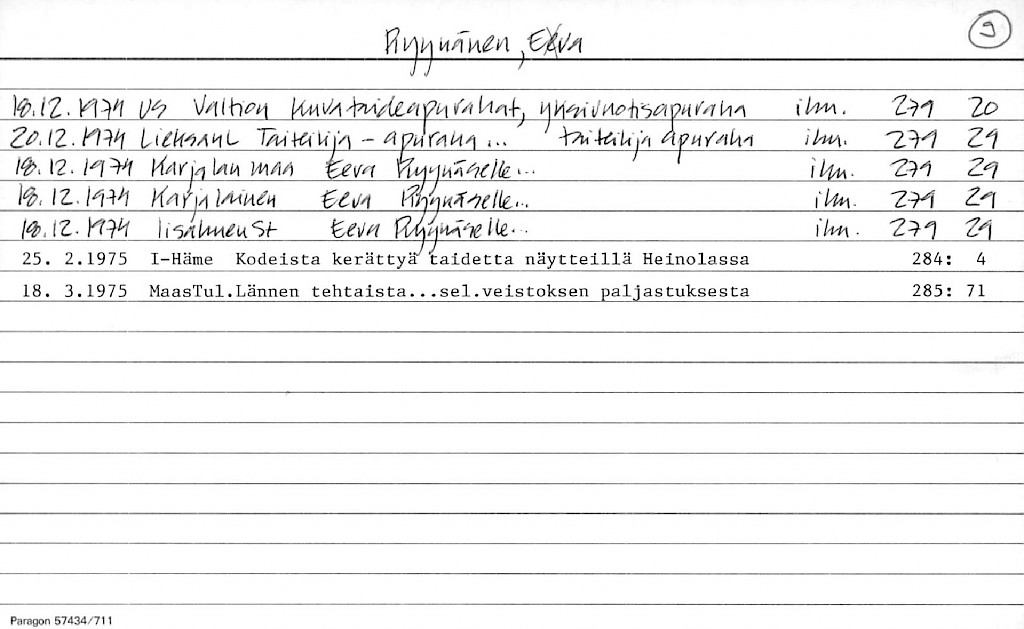 Ryynänen, Eeva
9
18.12.1974 US Valtion kuvataideapurahat, yksivuotisapuraha ilm. 279 20
20.12.1974 LieksanL Taiteilija-apuraha... taiteilija apuraha ilm. 279 29
18.12.1974 Karjalan maa Eeva Ryynäselle... ilm. 279 29
18.12.1974 Karjalainen Eeva Ryynäselle... ilm. 279 29
18.12.1974 IisalmenSt Eeva Ryynäselle... ilm. 279 29
25. 2.1975 I-Häme Kodeista kerättyä taidetta näytteillä Heinolassa 284: 4
18. 3.1975 MaasTul.Lännen tehtaista...sel.veistoksen paljastuksesta 285: 71
Paragon 57434/711